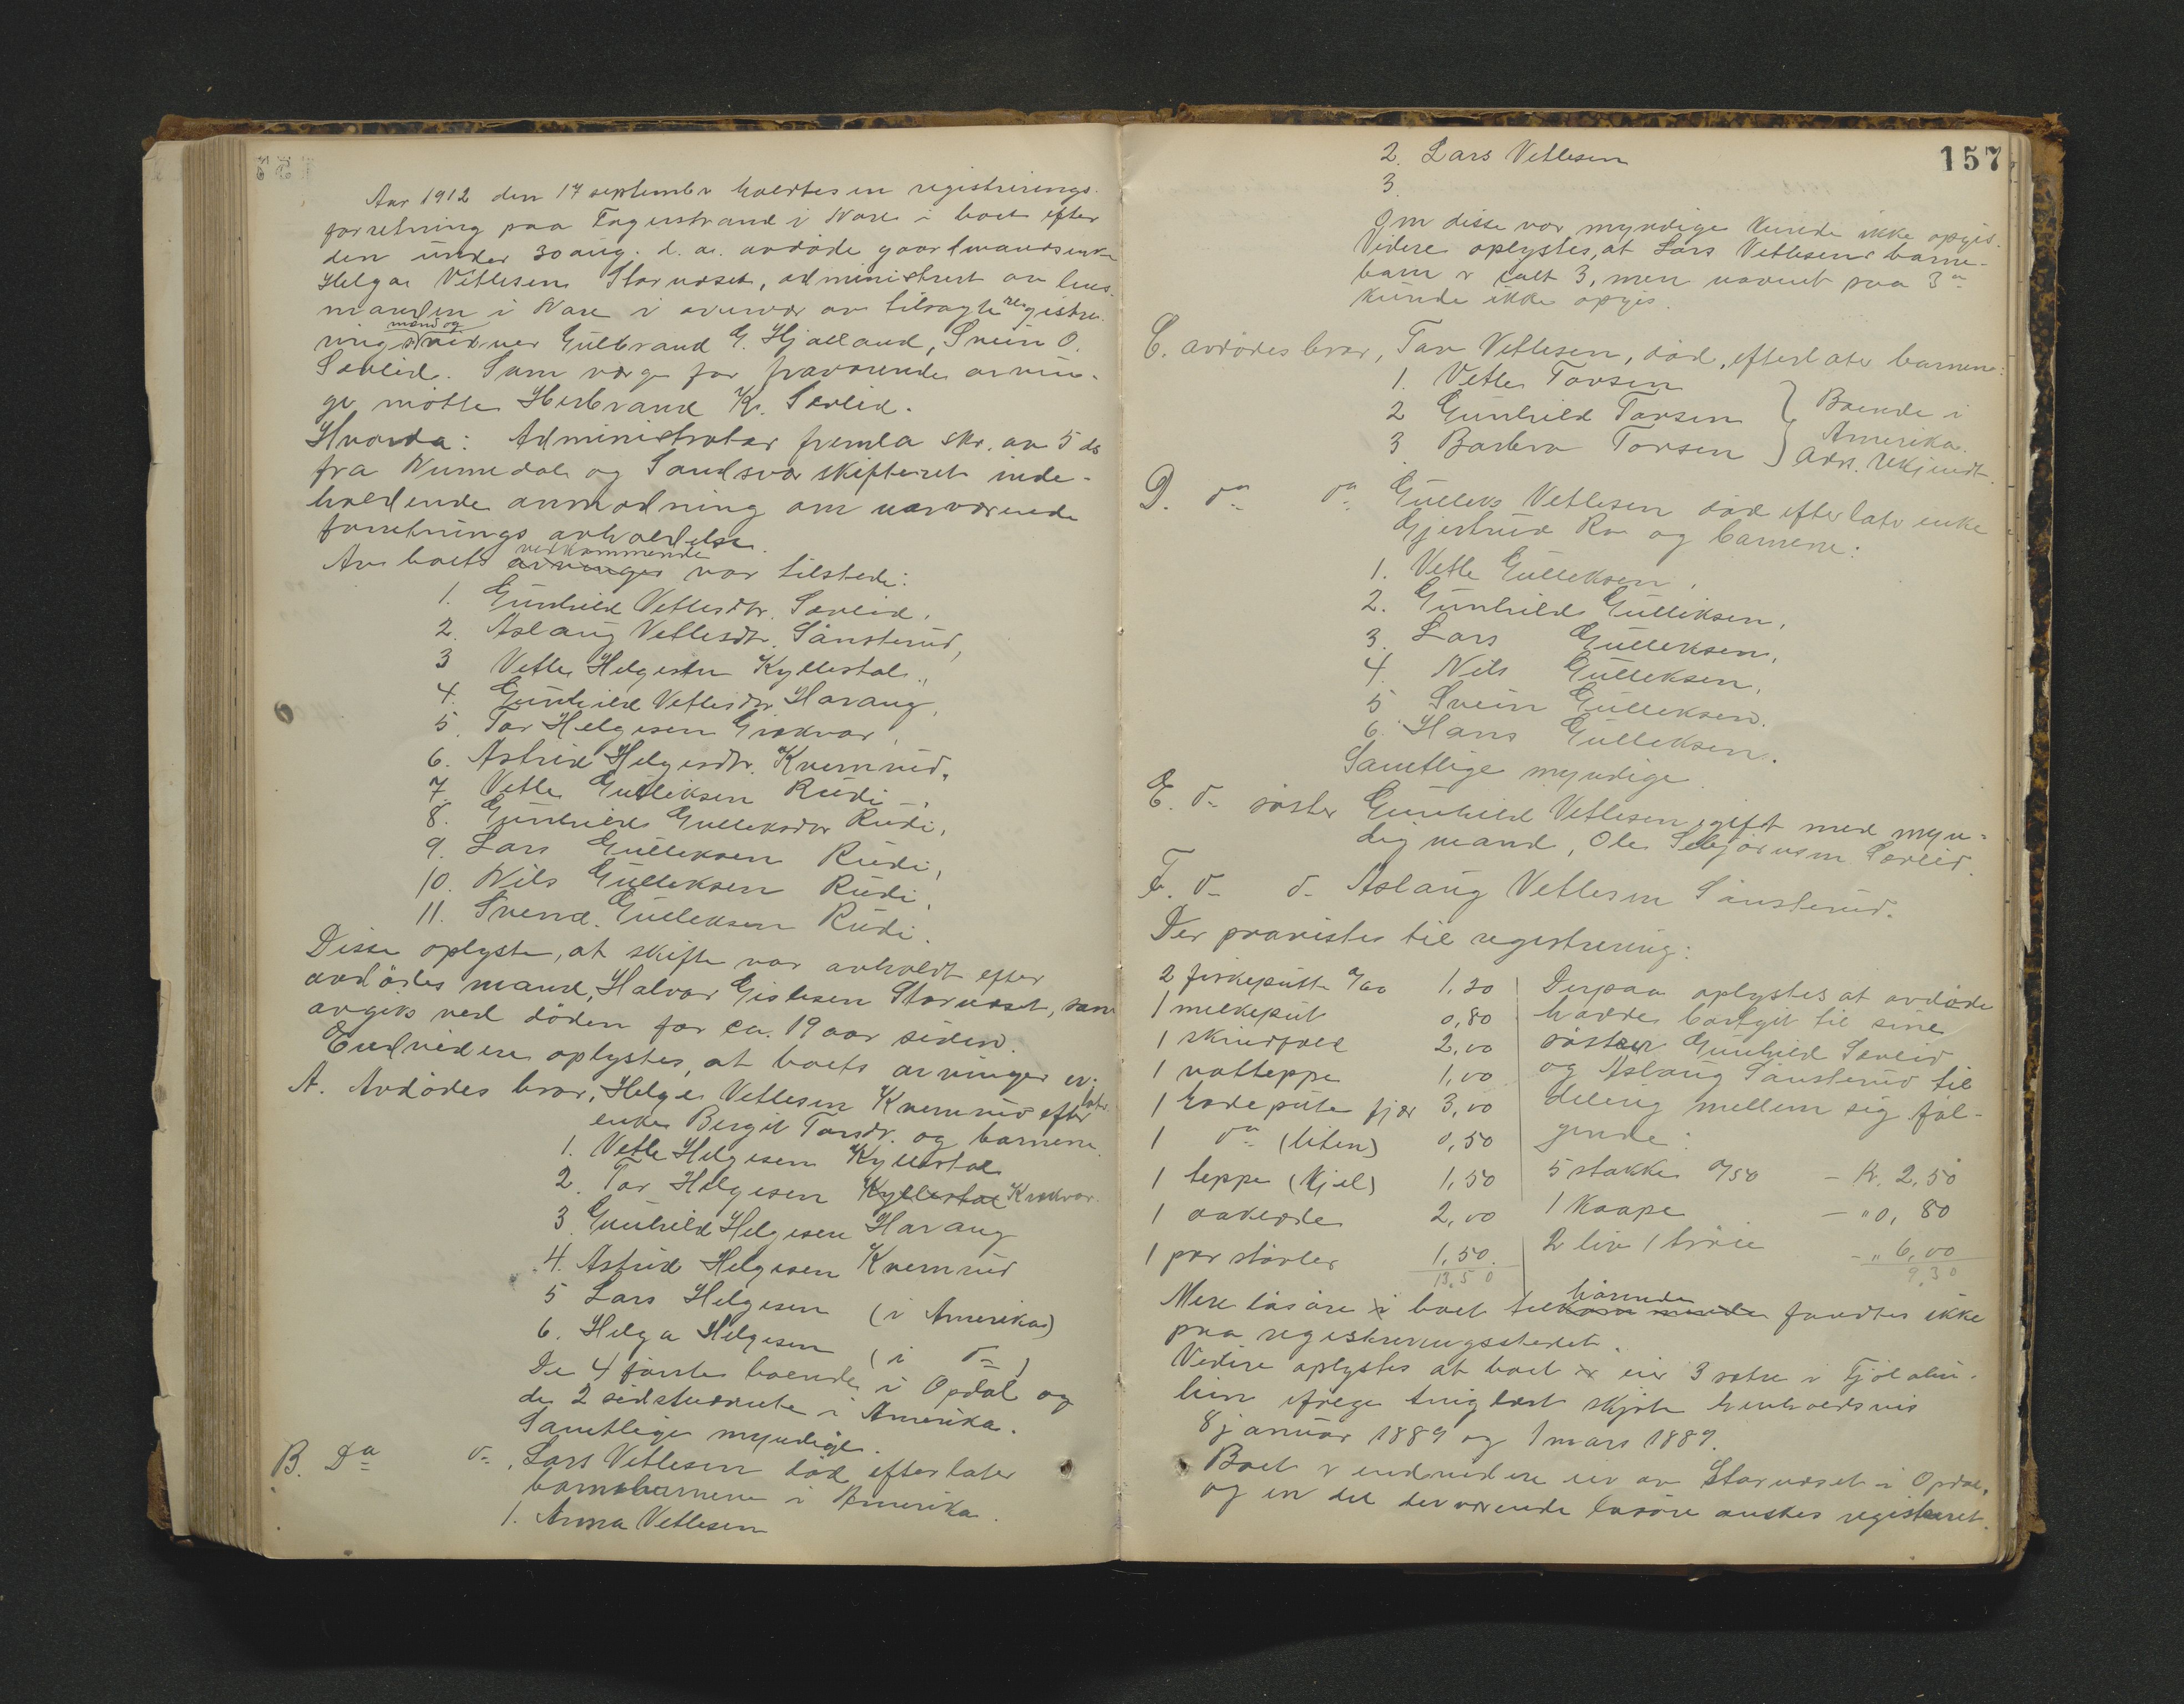 Aar 1912 den 17 september holdtes en registrerings-
forretning paa Fagerstrand i Nore i boet efter
den under 30 aug. d. aa. avdöde gaardmandsenke
Helga Vetlesen Storuset, administrert av lens-
manden i Nore i overvær av tilsagte registre-
rings mænd og vidner Gulbrand G. Hjalland, Svein O.
Sevleid. Som verge for fraværende arvin-
ge mötte Herbrand Kr. Sevleid.
Hvorda: Administrator fremla skr. av 5 ds
fra Numedal og Sandsvær skifteret inde-
holdende anmodning om nærværende
forretnings avholdelse.
Av boets arvinger vedkommende var tilstede:
1. Gunhild Vetlesdtr. Sevleid,
2. Aslaug Vetlesdtr. Sönsterud,
3 Vetle Helgesen Kyllestal,
4. Gunhild Vetlesdtr Havang,
5. Tor Helgesen Grokvar,
6. Astrid Helgesdtr. Kvemrud,
7. Vetle Gulleksen Rudi,
8. Gunhild Gulleksdtr Rudi,
9. Lars Gulleksen Rudi,
10. Nils Gulleksen Rudi,
11. Svend Gulleksen Rudi.
Disse oplyste, at skifte var avholdt efter
avdödes mand, Halvor Gislesen Storuset, som
avgik ved döden for ca. 19 aar siden.
Endvidere oplystes, at boets arvinger er:
A. Avdödes bror, Helge Vetlesen Kvemrud efterlater
enke Birgit Torsdr. og barnene
1. Vetle Helgesen Kyllestal
2. Tor Helgesen Kyllestal Krokvar.
3 Gunhild Helgesen Havang
4. Astrid Helgesen Kvemrud
5 Lars Helgesen (i Amerika)
6. Helga Helgesen (i do)
De 4 förste boende i Opdal og
de 2 sidstnævnte i Amerika.
Samtlige myndige.
B. Do do, Lars Vetlesen död, efterlater
barnebarnene i Amerika.
1. Anna Vetlesen
157
2. Lars Vetlesen
3
Om disse var myndige kunde ikke opgis.
Videre oplystes, at Lars Vetlesens barne-
barn er ialt 3, men navnet paa 3die
kunde ikke opgis.
C. avdödes bror, Tor Vetlesen, död, efterlater barnene:
1. Vetle Torsen
2 Gunhild Torsen
3. Barbra Torsen
Boende i
Amerika.
Adr. ukjendt.
D. do do Gullek Vetlesen död efterlater enke
Gjertrud Ro og barnene:
1. Vetle Gulleksen,
2. Gunhild Gulliksen,
3. Lars Gulleksen,
4. Nils Gulleksen,
5 Svein Gulleksen.
6. Hans Gulleksen.
Samtlige myndige
E. do söster Gunhild Vetlesen, gift med myn-
dig mand, Ole Sebjörnsen Sevleid.
F. do do Aslaug Vetlesen Sönsterud.
Der paavistes til registrering:
2 fiskeputt a/60 1,20
1 melkeput 0,80
1 skindfeld 2,00
1 rotteppe 1,00
1 hodepute fjær 3,00
1 do (liten) 0,50
1 teppe (kjel) 1,50
1 aaklæde 2,00
1 par stövler 1,50.
13,50
Derpaa oplystes at avdöde
hadde bortgit til sine
söstre Gunhild Sevleid
og Aslaug Sönsterud til
deling mellem sig föl-
gende:
5 stakke a/50 - K. 2,50
1 kaape - " 0,80
2 liv 1 tröie - " 6,00
9,30
Mere lösöre i boet tilhörende fandtes ikke
paa registreringsstedet.
Videre oplystes at boet er eier 3 sætre i Fjölabu-
lien ifölge tinglæst skjöte henholdsvis
8 januar 1889 og 1 mars 1889.
Boet er endvidere eier av Storuset i Opdal,
og en del derværende lösöre önskes registreret.